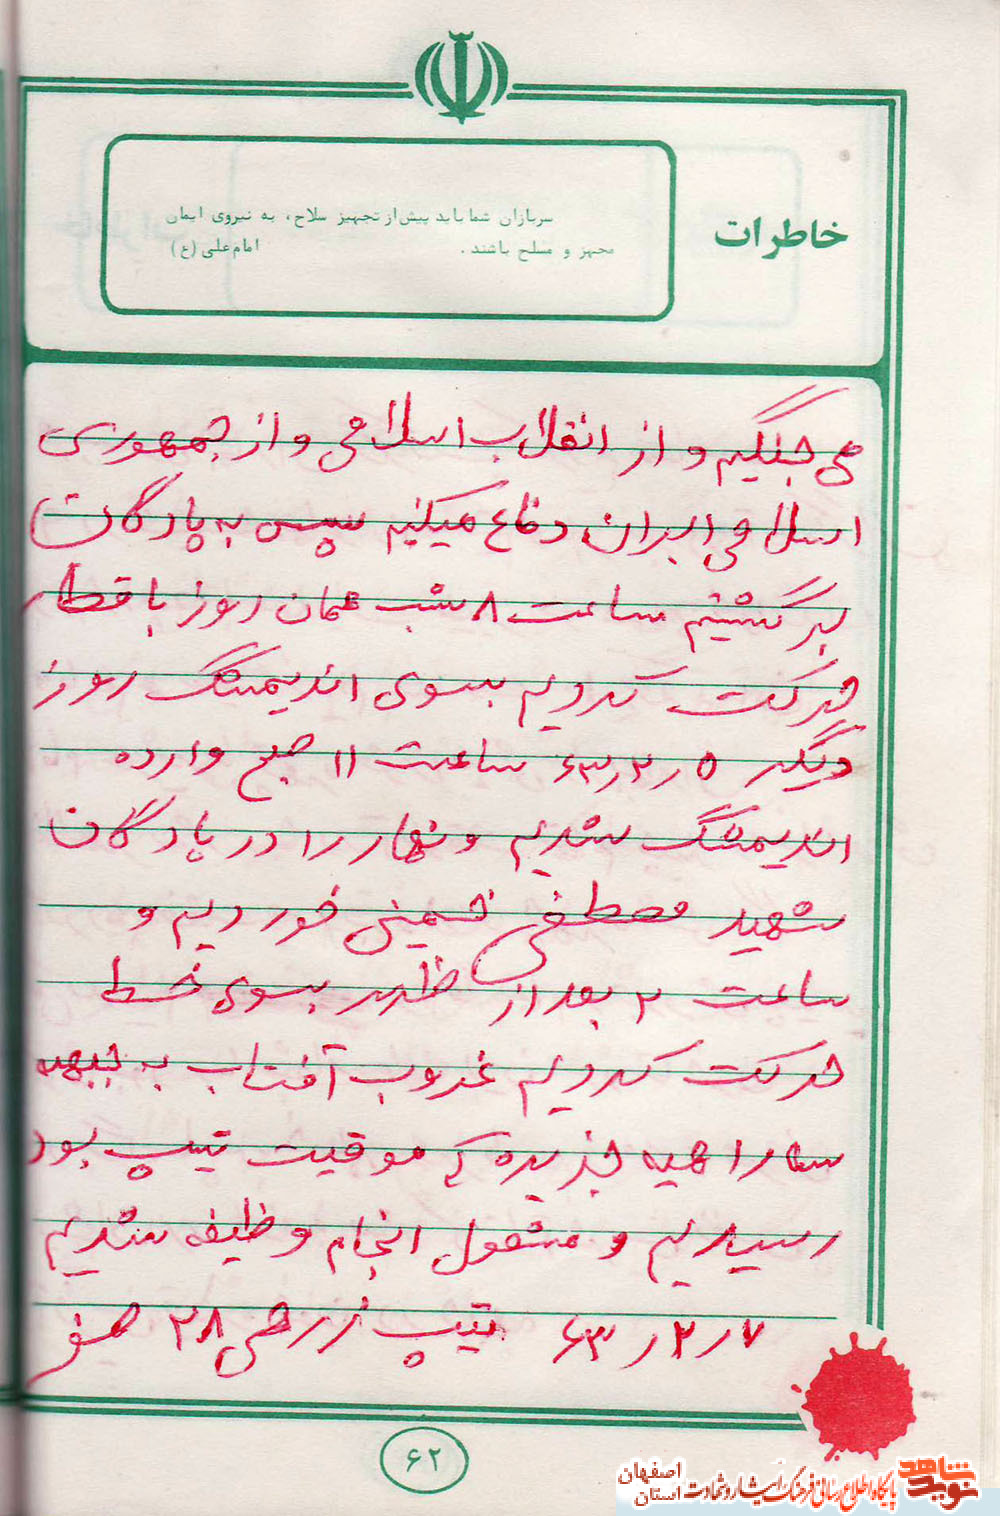 خاطرات
سربازان شما باید پیش از تجهیز سلاح، به نیروی ایمان
مجهز و مسلح باشند. امام علی (ع)
می جنگیم و از انقلاب اسلامی و از جمهوری
اسلامی ایران دفاع میکنیم سپس به پادگان
برگشتیم ساعت ۸ شب همان روز با قطار
حرکت کردیم بسوی اندیمشگ روز
دیگر ۵ر۲ر۶۳ ساعت ۱۱ صبح وارده
اندیمشگ شدیم و نهار را در پادگان
شهید مصطفی خمینی خوردیم و
ساعت ۲ بعد از ظهر بسوی خط
حرکت کردیم غروب آفتاب به جبهه
جزیره که موقیت تیپ بود
رسیدیم و مشغول انجام وظیفه شدیم
۷ر۲ر۶۳ تیپ زرهی ۲۸ صفر
۶۲
نوید شاهد
پایگاه اطلاع رسانی فرهنگ ایثار و شهادت
استان اصفهان